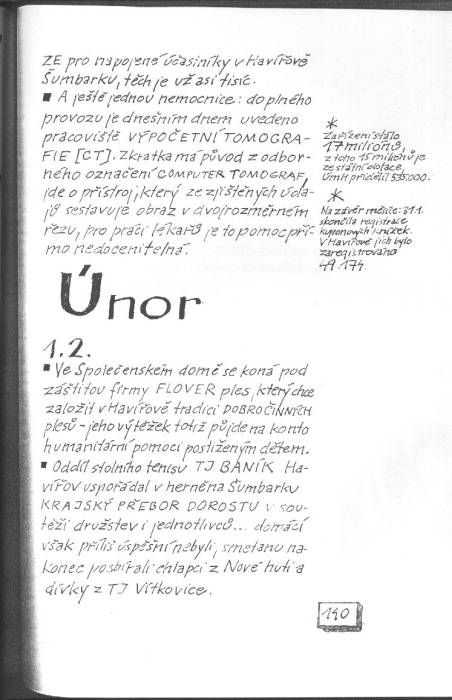 ZE pro napojené účastníky v Havířově
Šumbarku, těch je už asi tisíc.
▪ A ještě jednou nemocnice: do plného
provozu je dnešním dnem uvedeno
pracoviště VÝPOČETNÍ TOMOGRA-
FIE [CT]. Zkratka má původ z odbor-
ného označení COMPUTER TOMOGRAF,
jde o přístroj, který ze zjištěných úda-
jů sestavuje obraz v dvojrozměrném
řezu, pro práci lékařů je to pomoc pří-
mo nedocenitelná.
*
Zařízení stálo
17 milionů,
z toho 15 milionů je
ze státní dotace,
Úmrt přidělil 535.000.
*
Na závěr měsíce: 31.1.
skončila registrace
kuponových knížek.
V Havířově jich bylo
zaregistrováno
49.174.
Únor
1.2.
▪ Ve Společenském domě se koná pod
záštitou firmy FLOVER ples, který chce
založit v Havířově tradici DOBROČINNÝCH
plesů - jeho výtěžek totiž půjde na konto
humanitární pomoci postiženým dětem.
▪ Oddíl stolního tenisu TJ BANÍK Ha-
vířov uspořádal v herně na Šumbarku
KRAJSKÝ PŘEBOR DOROSTU v sou-
těži družstev i jednotlivců... domácí
však příliš úspěšní nebyli, smetanu na-
konec posbírali chlapci z Nové huti a
dívky z TJ Vítkovice.
140